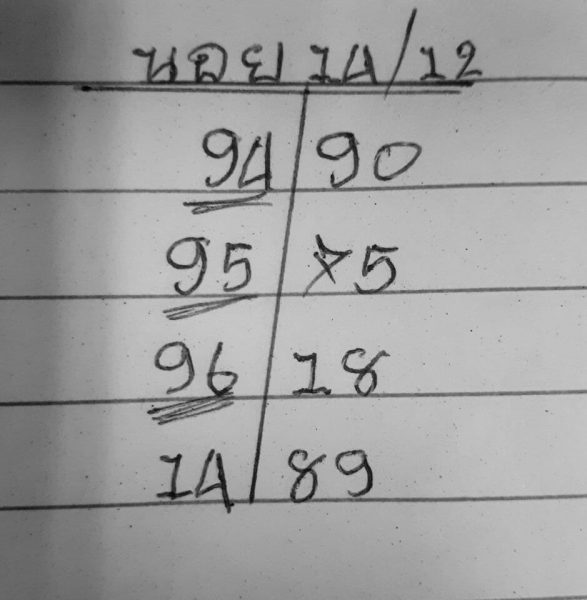 นอย 14/12
94 90
95 75
96 18
14 89